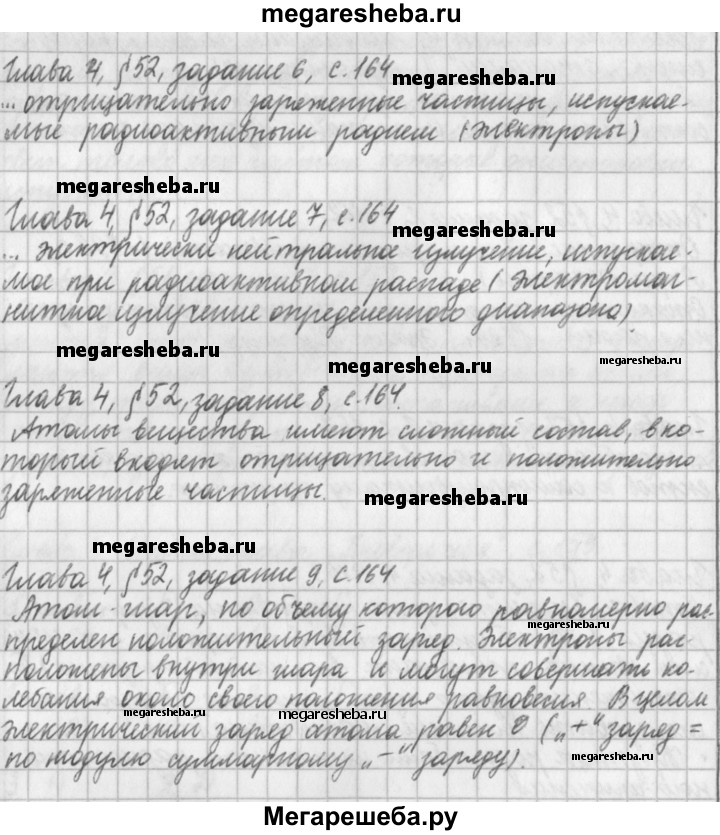 megaresheba.ru
Глава 4, §52, задание 6, с. 164 megaresheba.ru
... отрицательно заряженные частицы, испускае-
мые радиоактивным радием (электроны)
megaresheba.ru
Глава 4, §52, задание 7, с. 164 megaresheba.ru
... электрически нейтральное излучение, испускае-
мое при радиоактивном распаде (электромаг-
нитное излучение определенного диапазона).
megaresheba.ru megaresheba.ru megaresheba.ru
Глава 4, §52, задание 8, с. 164.
Атомы вещества имеют сложный состав, в ко-
торый входят отрицательно и положительно
заряженные частицы. megaresheba.ru
megaresheba.ru
Глава 4, §52, задание 9, с. 164 megaresheba.ru
Атом-шар, по объему которого равномерно рас-
megaresheba.ru
пределен положительный заряд. Электроны рас-
положены внутри шара и могут совершать ко-
лебания около своего положения равновесия. В целом
megaresheba.ru megaresheba.ru
электрический заряд атома равен 0 („+“ заряд =
по модулю суммарному „–“ заряду). megaresheba.ru
Мегарешеба.ру